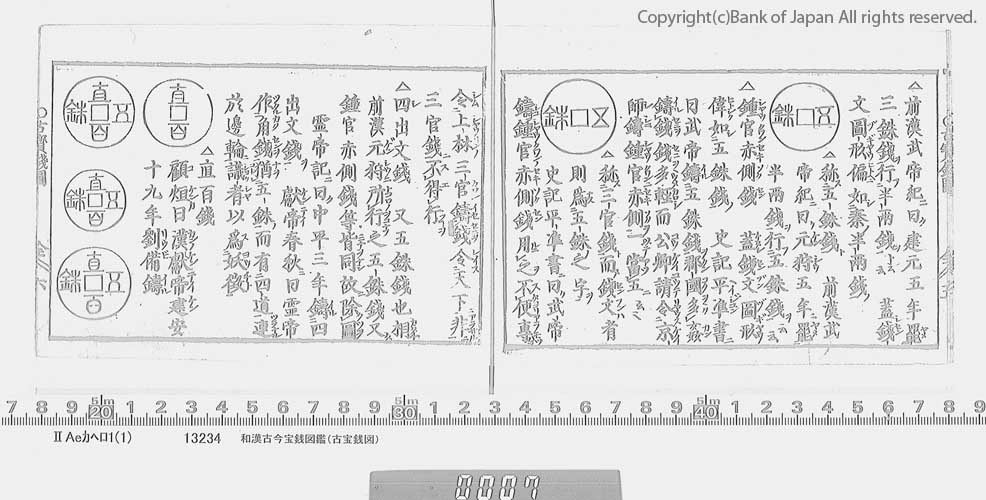 Copyright(c)Bank of Japan All rights reserved.
△前漢武帝紀曰建元五年罷
三銖錢行半兩錢
文圖形偏如秦半兩錢
△稱五銖錢 前漢武
帝紀曰元狩五年罷
半兩錢行五銖錢
△鍾官赤側錢 蓋錢文圖形
偉如五銖錢 史記平準書
曰武帝鑄五銖錢郡國多姦
鑄錢多輕而公卿請令京
師鑄鍾官赤側一當五
△稱三官錢而錢文有
則爲五銖之字
史記平準書曰武帝
鑄鍾官赤側錢用之不便專
令上林三官鑄錢令天下非
三官錢不得行
△四出文錢 又五銖錢也相
前漢元狩所行之五銖錢又
鍾官赤側錢等皆同故除圖
靈帝記曰中平三年鑄四
出文錢 獻帝春秋曰靈帝
作角錢猶五銖而有四道連
於邊輪識者以爲妖徴
△直百錢
顧烜曰漢獻帝建安
十九年劉備鑄
五銖
五銖
直百
直百五銖
直百
直百五銖
7 8 9 20 1 2 3 4 5 6 7 8 9 30 1 2 3 4 5 6 7 8 9 40 1 2 3 4 5 6 7 8 9
5 m 5 m 5 m
II Aeカヘロ1(1) 13234 和漢古今宝銭図鑑(古宝銭図)
0007